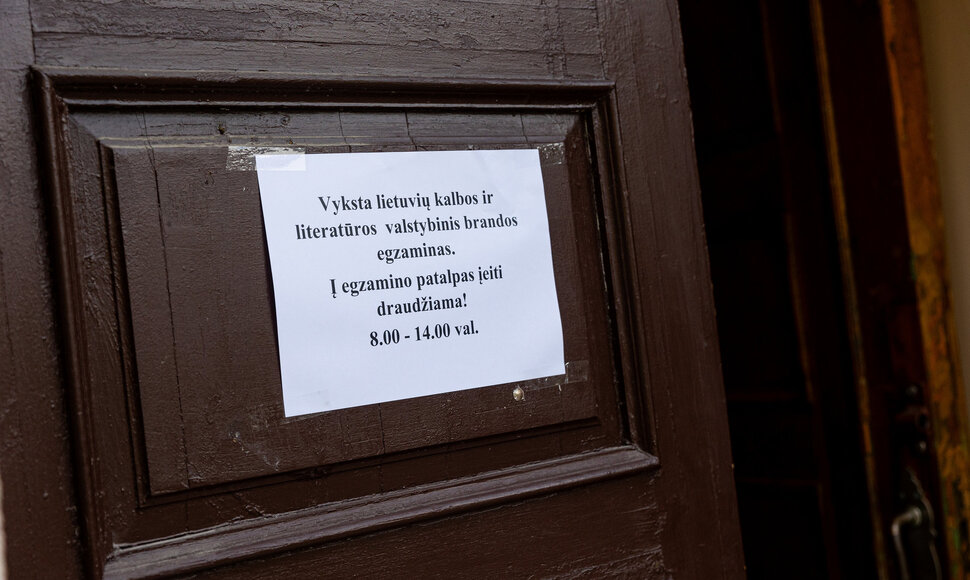 Vyksta lietuvių kalbos ir
literatūros valstybinis brandos
egzaminas.
Į egzamino patalpas įeiti
draudžiama!
8.00 - 14.00 val.